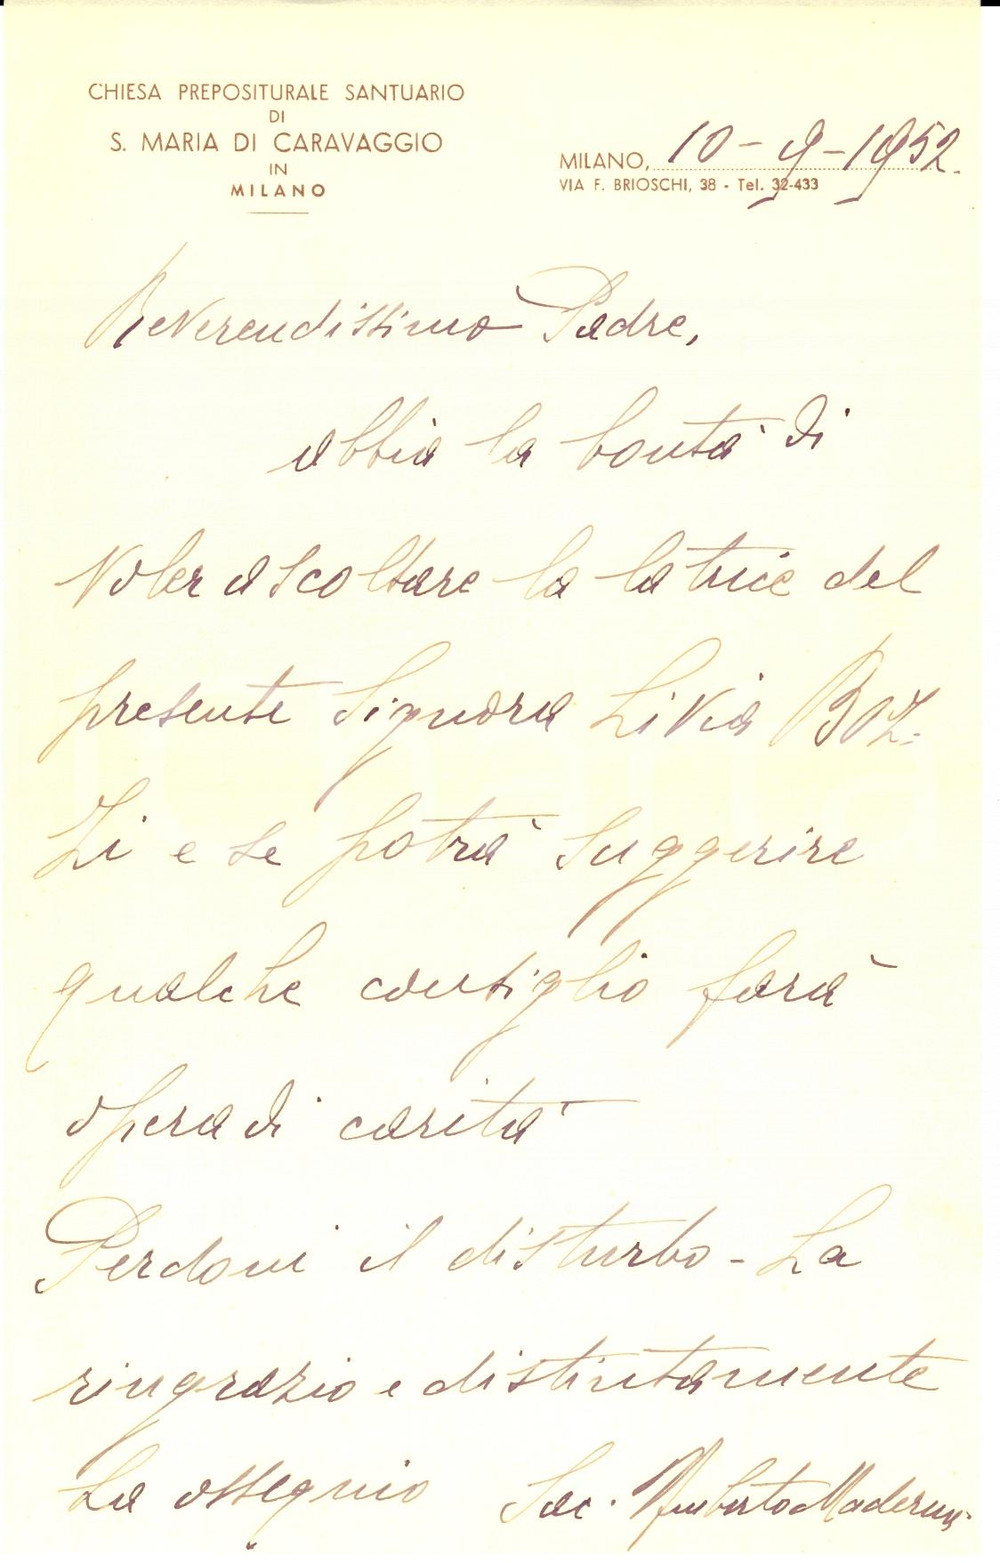 CHIESA PREPOSITURALE SANTUARIO
DI
S. MARIA DI CARAVAGGIO
IN
MILANO
MILANO, 10-9-1952.
VIA F. BRIOSCHI, 38 - Tel. 32-433
Reverendissimo Padre,
abbia la bontà di
voler ascoltare la latrice del
presente Signora Livia Boz-
zi e se potrà suggerire
qualche consiglio farà
opera di carità
Perdoni il disturbo - La
ringrazio e distintamente
La ossequio Sac. Umberto Maderna